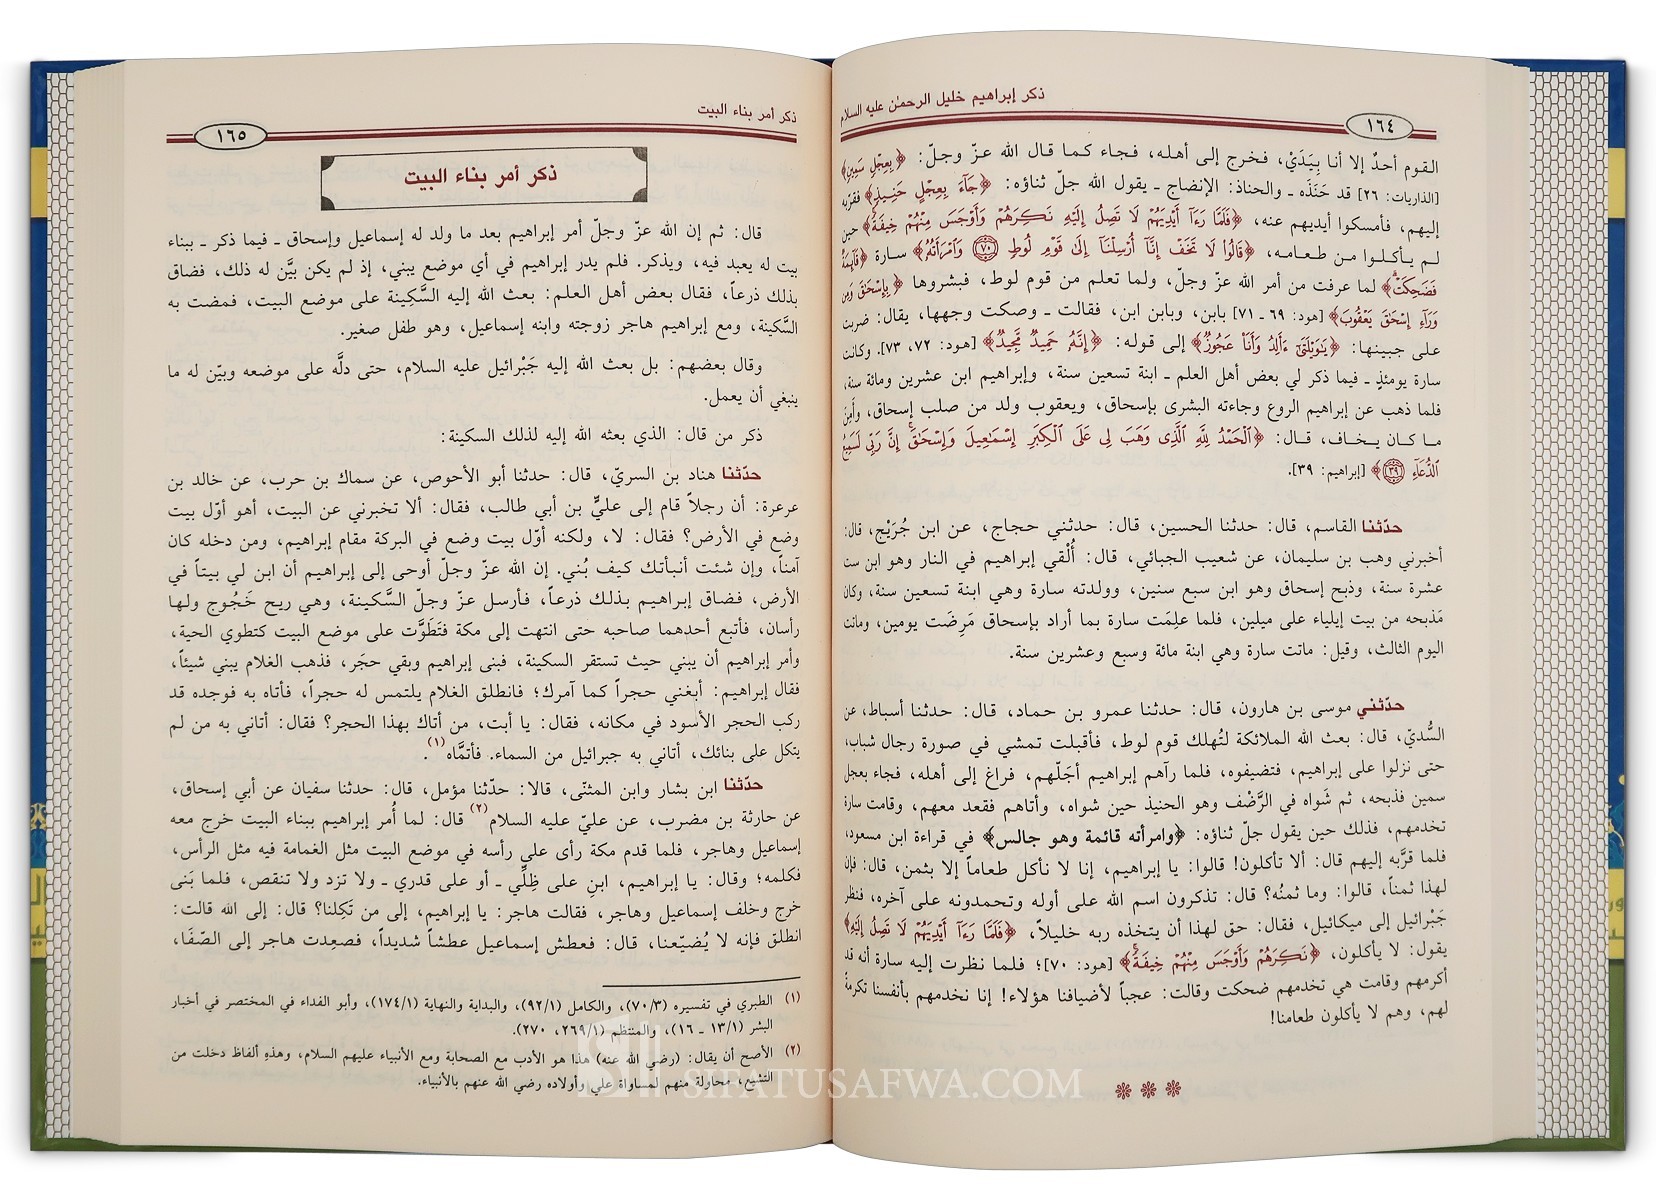 ذكر إبراهيم خليل الرحمٰن عليه السلام
١٦٤
القوم أحدٌ إلا أنا بِيَدَيْ، فخرج إلى أهله، فجاء كما قال الله عزّ وجلّ: ﴿بِعِجْلٍ سَمِينٍ﴾
[الذاريات: ٢٦] قد حَنَذَه ـ والحناذ: الإنضاج ـ يقول الله جلّ ثناؤه: ﴿جَآءَ بِعِجْلٍ حَنِيذٍ﴾ فقرّبه
إليهم، فأمسكوا أيديهم عنه، ﴿فَلَمَّا رَءَآ أَيْدِيَهُمْ لَا تَصِلُ إِلَيْهِ نَكِرَهُمْ وَأَوْجَسَ مِنْهُمْ خِيفَةً﴾ حين
لم يأكلوا من طعامه، ﴿قَالُوا لَا تَخَفْ إِنَّآ أُرْسِلْنَآ إِلَىٰ قَوْمِ لُوطٍ ۝٧٠ وَامْرَأَتُهُ﴾ سارة ﴿قَآئِمَةٌ
فَضَحِكَتْ﴾ لما عرفت من أمر الله عزّ وجلّ، ولما تعلم من قوم لوط، فبشروها ﴿بِإِسْحَٰقَ وَمِن
وَرَآءِ إِسْحَٰقَ يَعْقُوبَ﴾ [هود: ٦٩ ـ ٧١] بابن، وبابن ابن، فقالت ـ وصكت وجهها، يقال: ضربت
على جبينها: ﴿يَٰوَيْلَتَىٰٓ ءَأَلِدُ وَأَنَا۠ عَجُوزٌ﴾ إلى قوله: ﴿إِنَّهُ حَمِيدٌ مَّجِيدٌ﴾ [هود: ٧٢، ٧٣]. وكانت
سارة يومئذٍ ـ فيما ذكر لي بعض أهل العلم ـ ابنة تسعين سنة، وإبراهيم ابن عشرين ومائة سنة،
فلما ذهب عن إبراهيم الروع وجاءته البشرى بإسحاق، ويعقوب ولد من صلب إسحاق، وأَمِنَ
ما كان يخاف، قال: ﴿الْحَمْدُ لِلَّهِ الَّذِى وَهَبَ لِى عَلَى الْكِبَرِ إِسْمَٰعِيلَ وَإِسْحَٰقَ إِنَّ رَبِّى لَسَمِيعُ
الدُّعَآءِ ۝٣٩﴾ [إبراهيم: ٣٩].
حدّثنا القاسم، قال: حدثنا الحسين، قال: حدثني حجاج، عن ابن جُرَيْج، قال:
أخبرني وهب بن سليمان، عن شعيب الجبائي، قال: أُلْقي إبراهيم في النار وهو ابن ست
عشرة سنة، وذبح إسحاق وهو ابن سبع سنين، وولدته سارة وهي ابنة تسعين سنة، وكان
مَذبحه من بيت إيلياء على ميلين، فلما علِمَت سارة بما أراد بإسحاق مَرِضَت يومين، وماتت
اليوم الثالث، وقيل: ماتت سارة وهي ابنة مائة وسبع وعشرين سنة.
حدّثني موسى بن هارون، قال: حدثنا عمرو بن حماد، قال: حدثنا أسباط، عن
السُّديّ، قال: بعث الله الملائكة لتُهلك قوم لوط، فأقبلت تمشي في صورة رجال شباب،
حتى نزلوا على إبراهيم، فتضيفوه، فلما رآهم إبراهيم أجَلّهم، فراغ إلى أهله، فجاء بعجل
سمين فذبحه، ثم شَواه في الرَّضْف وهو الحنيذ حين شواه، وأتاهم فقعد معهم، وقامت سارة
تخدمهم، فذلك حين يقول جلّ ثناؤه: ﴿وامرأته قائمة وهو جالس﴾ في قراءة ابن مسعود،
فلما قرَّبه إليهم قال: ألا تأكلون! قالوا: يا إبراهيم، إنا لا نأكل طعاماً إلا بثمن، قال: فإن
لهذا ثمناً، قالوا: وما ثمنُه؟ قال: تذكرون اسم الله على أوله وتحمدونه على آخره، فنظر
جَبْرائيل إلى ميكائيل، فقال: حق لهذا أن يتخذه ربه خليلاً، ﴿فَلَمَّا رَءَآ أَيْدِيَهُمْ لَا تَصِلُ إِلَيْهِ﴾
يقول: لا يأكلون، ﴿نَكِرَهُمْ وَأَوْجَسَ مِنْهُمْ خِيفَةً﴾ [هود: ٧٠]؛ فلما نظرت إليه سارة أنه قد
أكرمهم وقامت هي تخدمهم ضحكت وقالت: عجباً لأضيافنا هؤلاء! إنا نخدمهم بأنفسنا تكرمةً
لهم، وهم لا يأكلون طعامنا!
ذكر أمر بناء البيت
١٦٥
ذكر أمر بناء البيت
قال: ثم إن الله عزّ وجلّ أمر إبراهيم بعد ما ولد له إسماعيل وإسحاق ـ فيما ذكر ـ ببناء
بيت له يعبد فيه، ويذكر. فلم يدر إبراهيم في أي موضع يبني، إذ لم يكن بيَّن له ذلك، فضاق
بذلك ذرعاً، فقال بعض أهل العلم: بعث الله إليه السَّكِينة على موضع البيت، فمضت به
السَّكينة، ومع إبراهيم هاجر زوجته وابنه إسماعيل، وهو طفل صغير.
وقال بعضهم: بل بعث الله إليه جَبْرائيل عليه السلام، حتى دلَّه على موضعه وبيّن له ما
ينبغي أن يعمل.
ذكر من قال: الذي بعثه الله إليه لذلك السكينة:
حدّثنا هناد بن السريّ، قال: حدثنا أبو الأحوص، عن سماك بن حرب، عن خالد بن
عرعرة: أن رجلاً قام إلى عليٍّ بن أبي طالب، فقال: ألا تخبرني عن البيت، أهو أوّل بيت
وضع في الأرض؟ فقال: لا، ولكنه أوّل بيت وضع في البركة مقام إبراهيم، ومن دخله كان
آمناً، وإن شئت أنبأتك كيف بُني. إن الله عزّ وجلّ أوحى إلى إبراهيم أن ابن لي بيتاً في
الأرض، فضاق إبراهيم بذلك ذرعاً، فأرسل عزّ وجلّ السَّكينة، وهي ريح خَجُوج ولها
رأسان، فأتبع أحدهما صاحبه حتى انتهت إلى مكة فتَطَوَّت على موضع البيت كتطوي الحية،
وأمر إبراهيم أن يبني حيث تستقر السكينة، فبنى إبراهيم وبقي حجَر، فذهب الغلام يبني شيئاً،
فقال إبراهيم: أبغني حجراً كما آمرك؛ فانطلق الغلام يلتمس له حجراً، فأتاه به فوجده قد
ركب الحجر الأسود في مكانه، فقال: يا أبت، من أتاك بهذا الحجر؟ فقال: أتاني به من لم
يتكل على بنائك، أتاني به جبرائيل من السماء. فأتمَّاه(١).
حدّثنا ابن بشار وابن المثنّى، قالا: حدّثنا مؤمل، قال: حدثنا سفيان عن أبي إسحاق،
عن حارثة بن مضرب، عن عليّ عليه السلام(٢) قال: لما أُمر إبراهيم ببناء البيت خرج معه
إسماعيل وهاجر، فلما قدم مكة رأى على رأسه في موضع البيت مثل الغمامة فيه مثل الرأس،
فكلمه؛ وقال: يا إبراهيم، ابنِ على ظِلِّي ـ أو على قدري ـ ولا تزد ولا تنقص، فلما بَنى
خرج وخلف إسماعيل وهاجر، فقالت هاجر: يا إبراهيم، إلى من تَكِلنا؟ قال: إلى الله قالت:
انطلق فإنه لا يُضيّعنا، قال: فعطش إسماعيل عطشاً شديداً، فصعِدت هاجر إلى الصّفَا،
(١) الطبري في تفسيره (٧٠/٣)، والكامل (٩٢/١)، والبداية والنهاية (١٧٤/١)، وأبو الفداء في المختصر في أخبار
البشر (١٣/١ ـ ١٦)، والمنتظم (٢٦٩/١، ٢٧٠).
(٢) الأصح أن يقال: (رضي الله عنه) هذا هو الأدب مع الصحابة ومع الأنبياء عليهم السلام، وهذه ألفاظ دخلت من
التشيع، محاولة منهم لمساواة علي وأولاده رضي الله عنهم بالأنبياء.
SIFATUSAFWA.COM